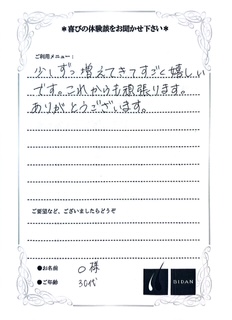 ＊喜びの体験談をお聞かせ下さい＊
ご利用メニュー：
少しずつ増えてきてすごく嬉しい
です。これからも頑張ります。
ありがとうございます。
ご要望など、ございましたらどうぞ
●お名前 O 様
●ご年齢 30代
BIDAN